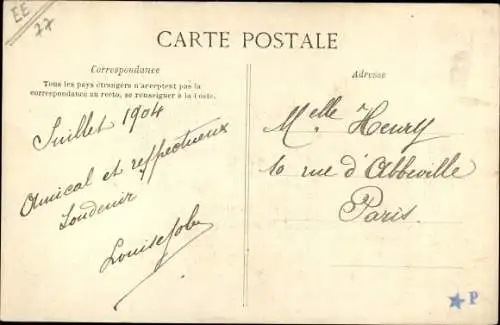 EE
77
CARTE POSTALE
Correspondance
Tous les pays étrangers n'acceptent pas la
correspondance au recto, se renseigner à la Poste.
Juillet 1904
Amical et respectueux
Souvenir
Louise
Adresse
Melle Henry
10 rue d'Abbeville
Paris.
P